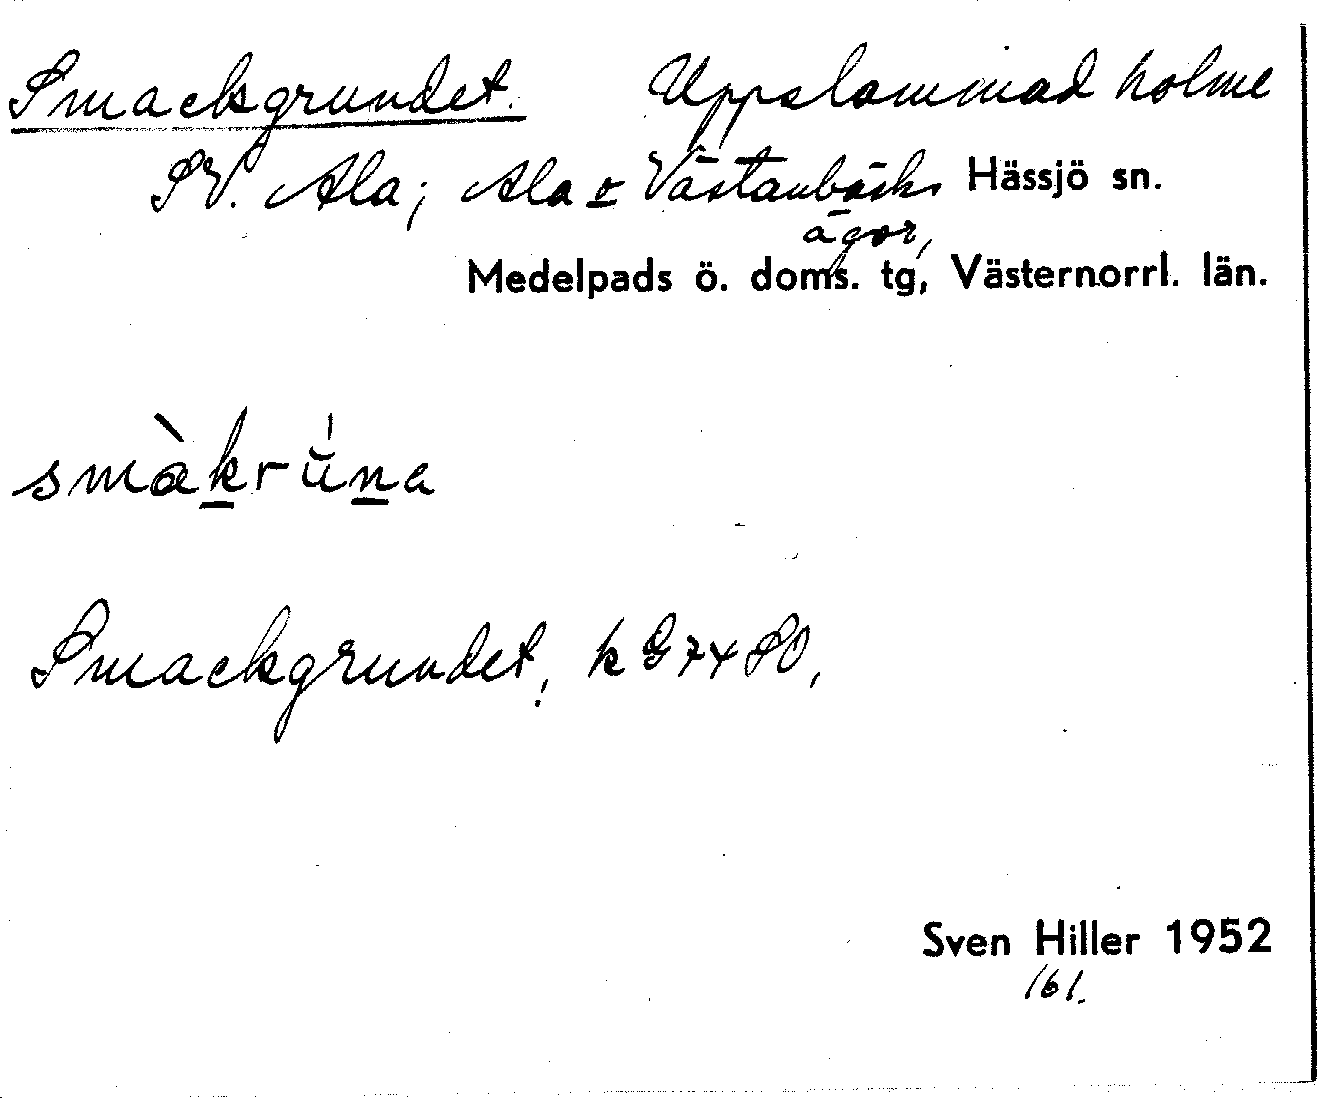 Smackgrundet. Uppslammad holme
SV. Ala; Ala o Västanbäcks Hässjö sn.
ägor,
Medelpads ö. doms. tg, Västernorrl. län.
smàkrŭ́na
Smackgrundet, k G7480,
Sven Hiller 1952
161.